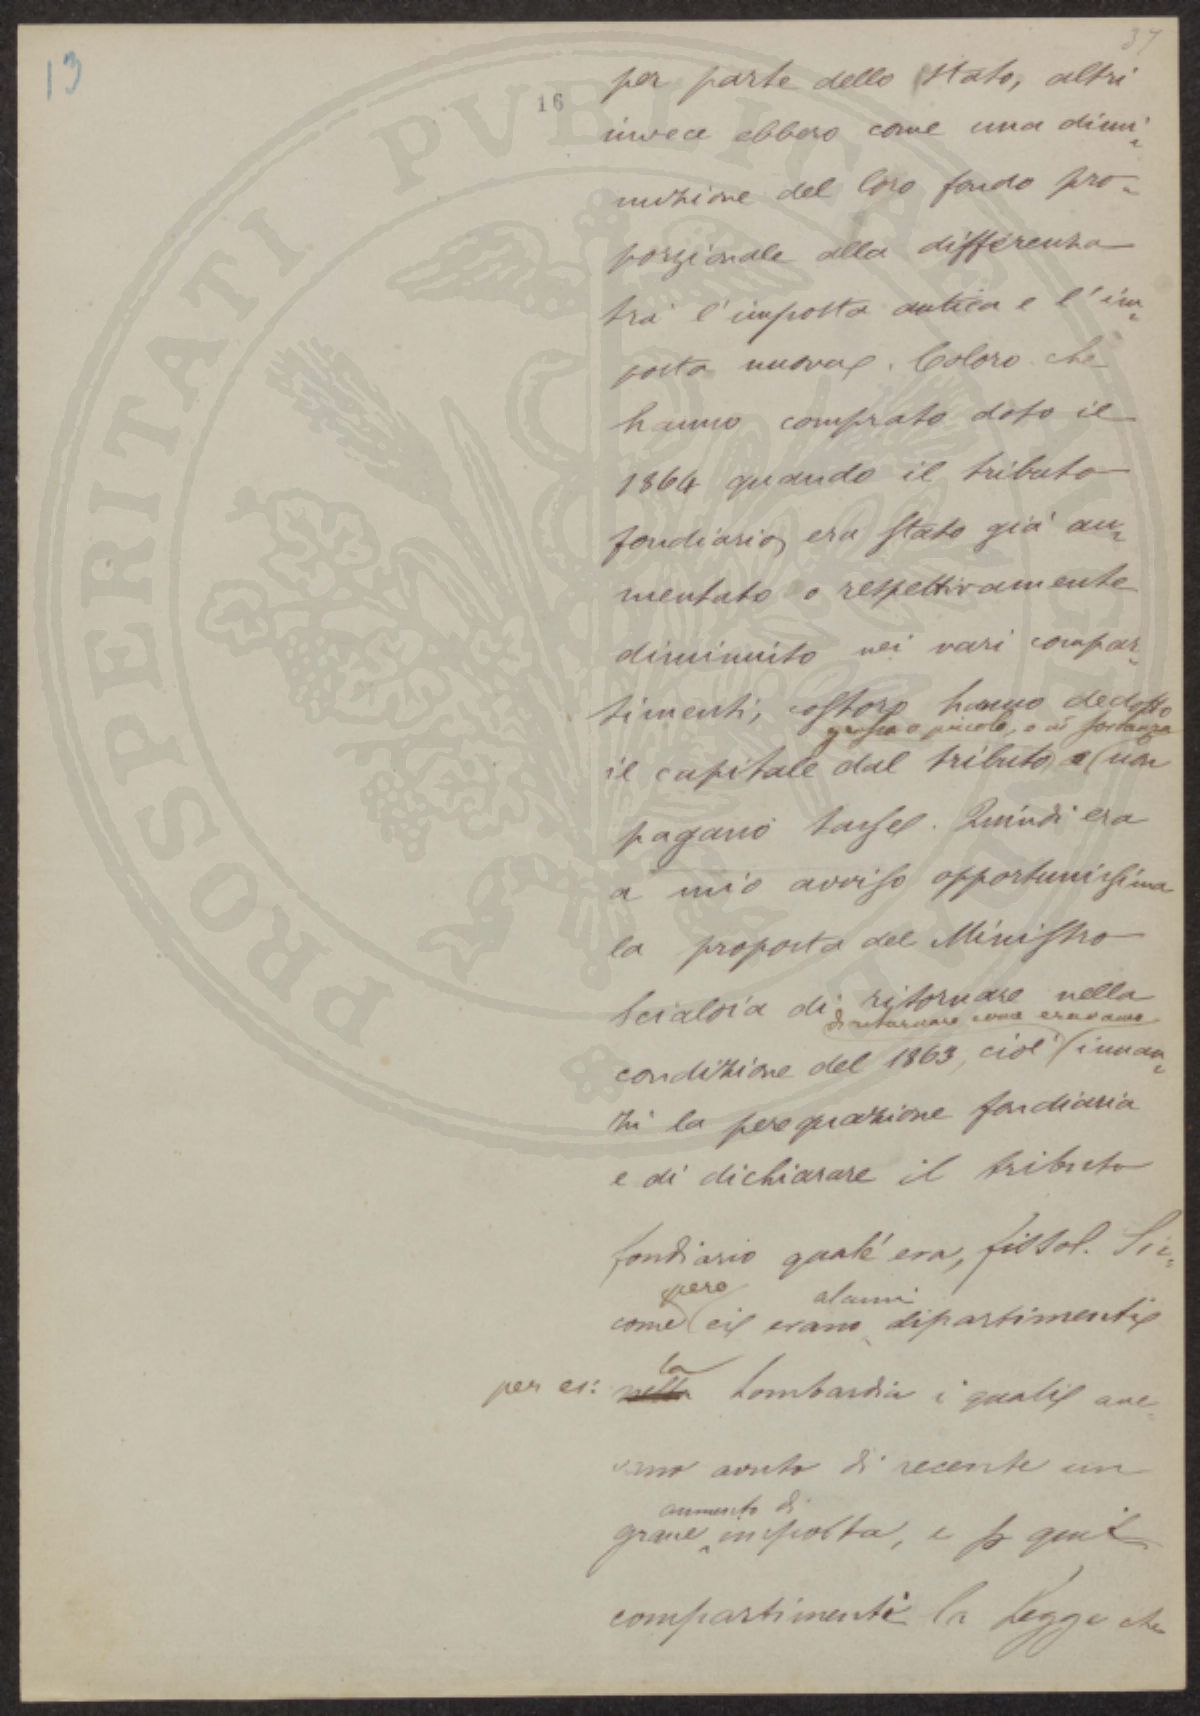 13
37
16
per parte dello Stato, altri
invece ebbero come una dimi-
nuzione del loro fondo pro-
porzionale alla differenza
tra l'imposta antica e l'im-
posta nuova. Coloro che
hanno comprato doto il
1864 quando il tributo
fondiario, era stato già au-
mentato o respettivamente
diminuito nei vari compar-
timenti, costoro hanno dedotto
grosso o piccolo, o in sostanza
il capitale dal tributo e non
pagano tasse. Quindi era
a mio avviso opportunissima
la proposta del Ministro
Scialoia di ritornare nella
di ritornare come eravamo
condizione del 1863, cioè innan-
zi la perequazione fondiaria
e di dichiarare il tributo
fondiario qual'era, fisso. Sic-
pero alcuni
come ci erano dipartimenti
per es: la
nella Lombardia i quali ave-
vano avuto di recente un
aumento di
grave imposta, e p quei
compartimenti la Legge che
PROSPERITATI PVBLICAE